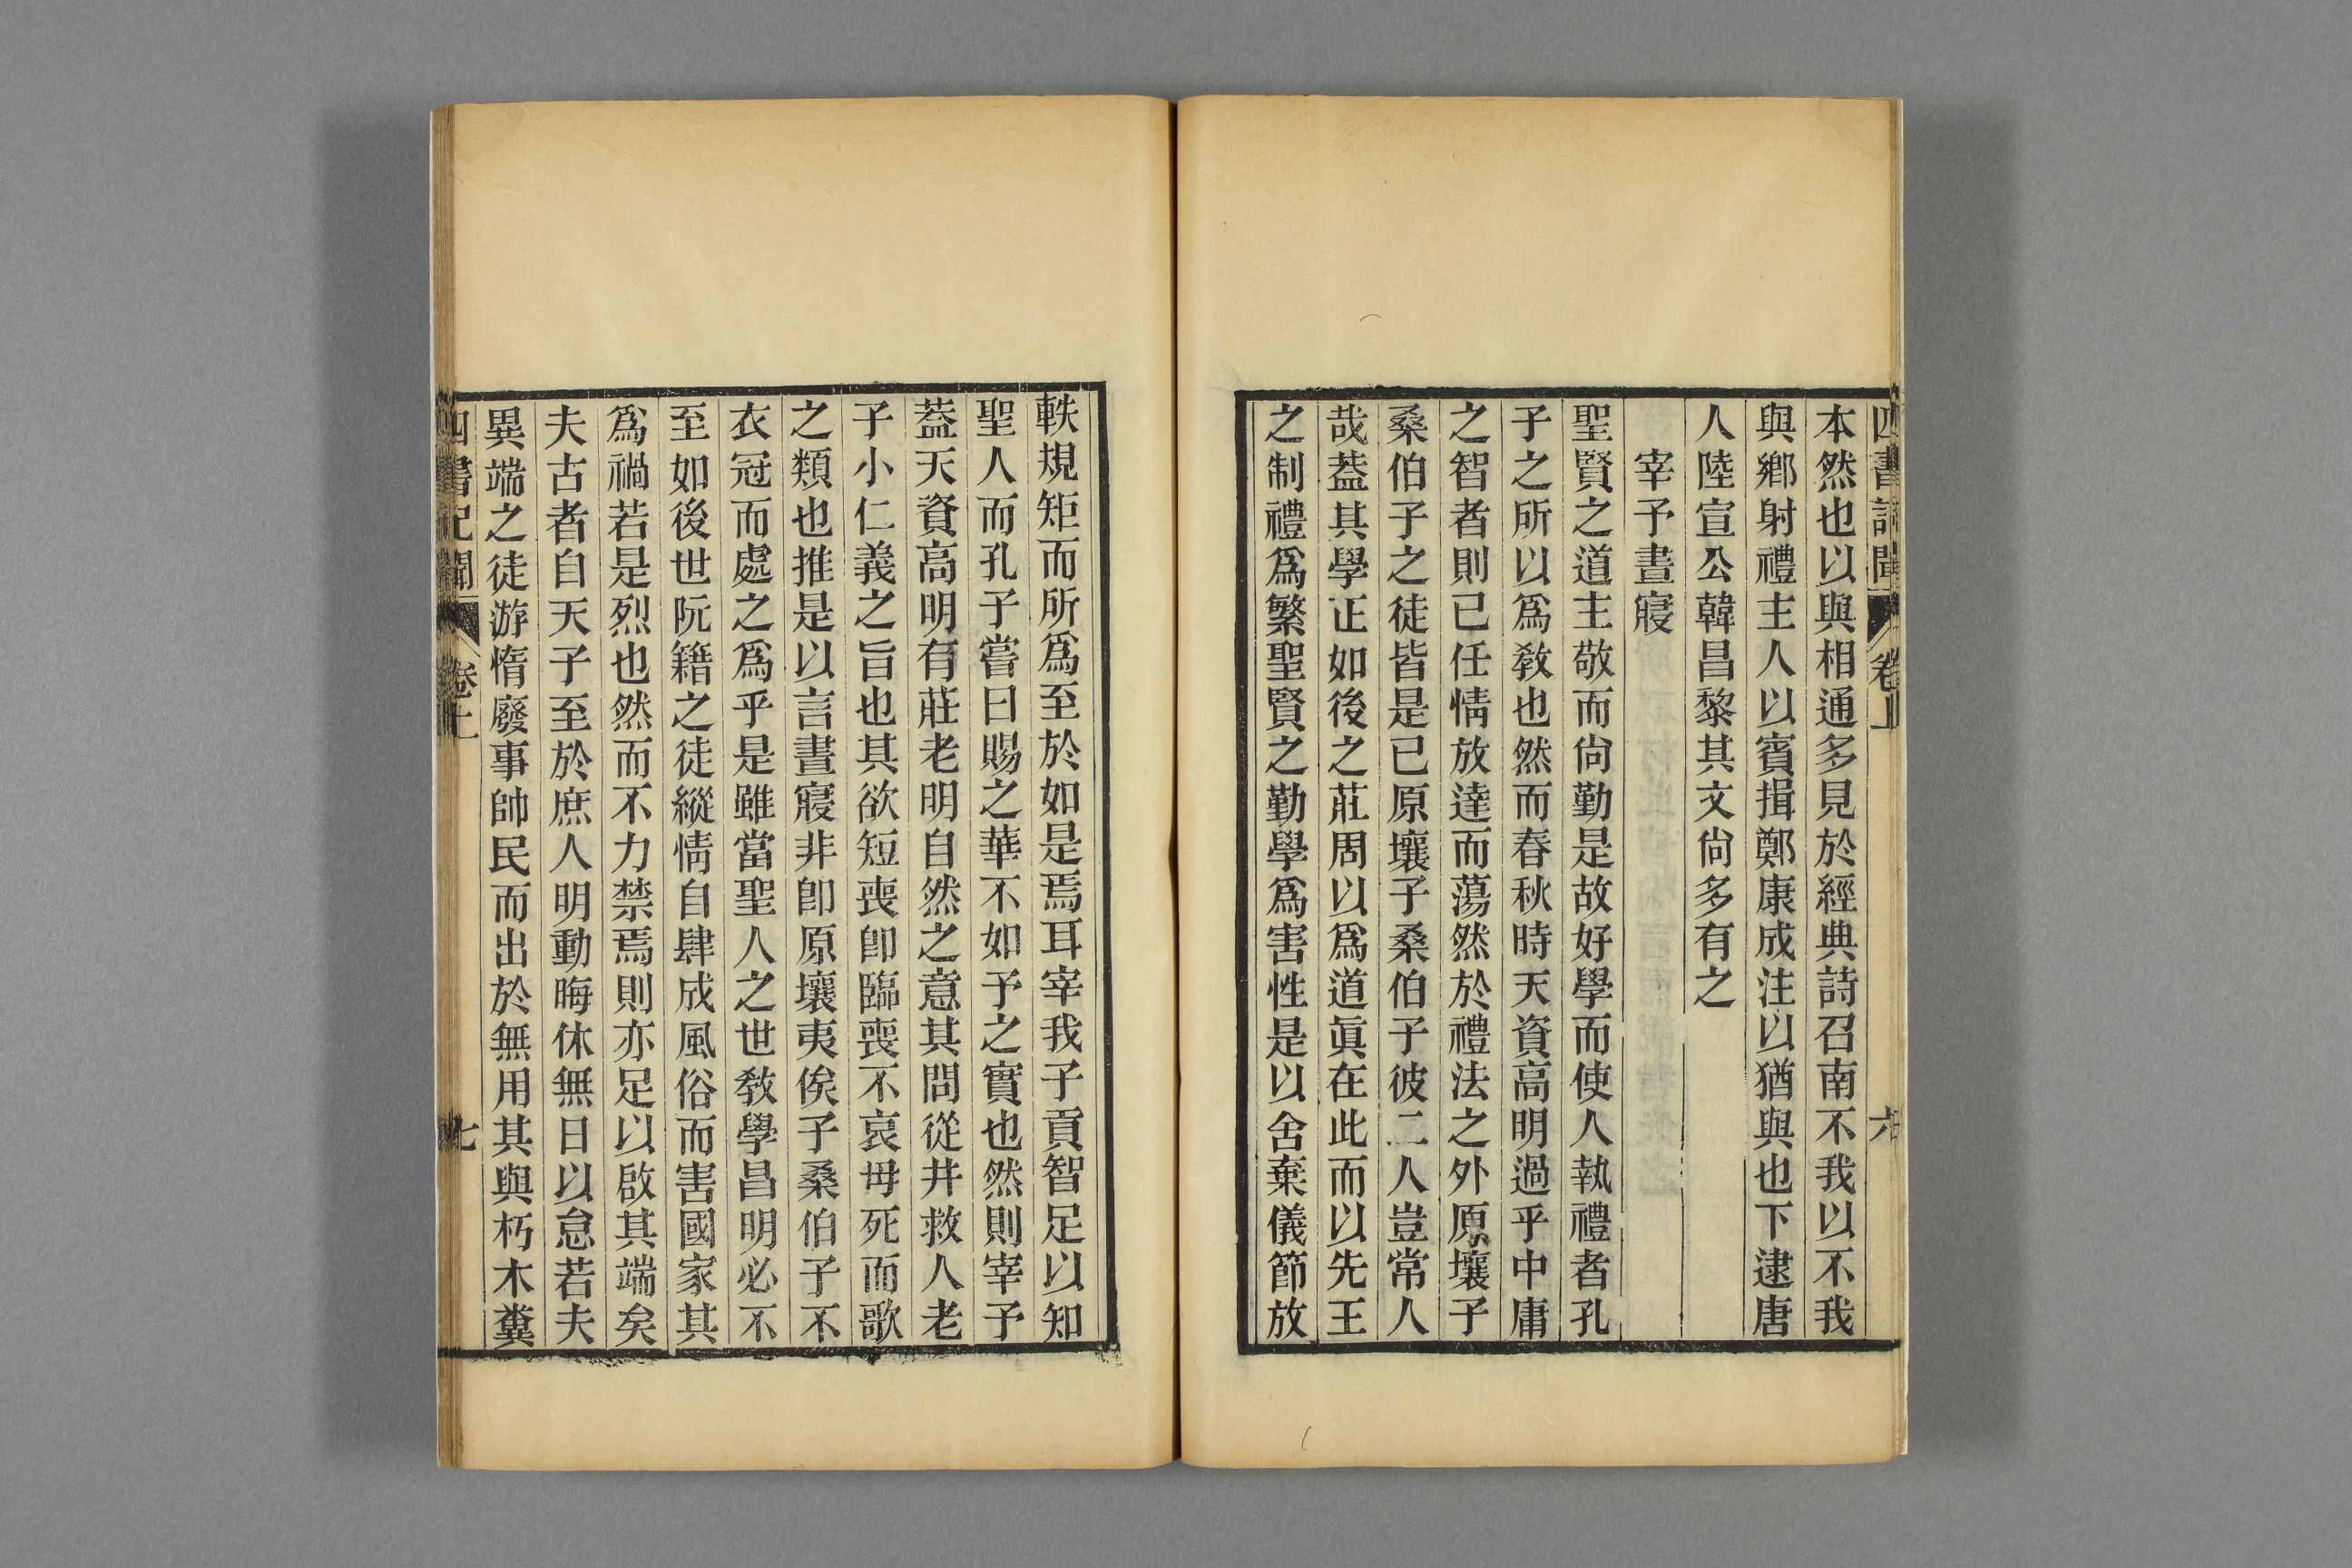 四書記聞 卷上 六
本然也以與相通多見於經典詩召南不我以不我
與鄉射禮主人以賓揖鄭康成注以猶與也下逮唐
人陸宣公韓昌黎其文尙多有之
宰予晝寢
聖賢之道主敬而尙勤是故好學而使人執禮者孔
子之所以爲敎也然而春秋時天資高明過乎中庸
之智者則已任情放達而蕩然於禮法之外原壤子
桑伯子之徒皆是已原壤子桑伯子彼二人豈常人
哉葢其學正如後之莊周以爲道眞在此而以先王
之制禮爲繁聖賢之勤學爲害性是以舍棄儀節放
軼規矩而所爲至於如是焉耳宰我子貢智足以知
聖人而孔子嘗曰賜之華不如予之實也然則宰予
葢天資高明有莊老明自然之意其問從井救人老
子小仁義之旨也其欲短喪卽臨喪不哀母死而歌
之類也推是以言晝寢非卽原壤夷俟子桑伯子不
衣冠而處之爲乎是雖當聖人之世敎學昌明必不
至如後世阮籍之徒縱情自肆成風俗而害國家其
爲禍若是烈也然而不力禁焉則亦足以啟其端矣
夫古者自天子至於庶人明動晦休無日以怠若夫
異端之徒游惰廢事帥民而出於無用其與朽木糞
四書記聞 卷上 七